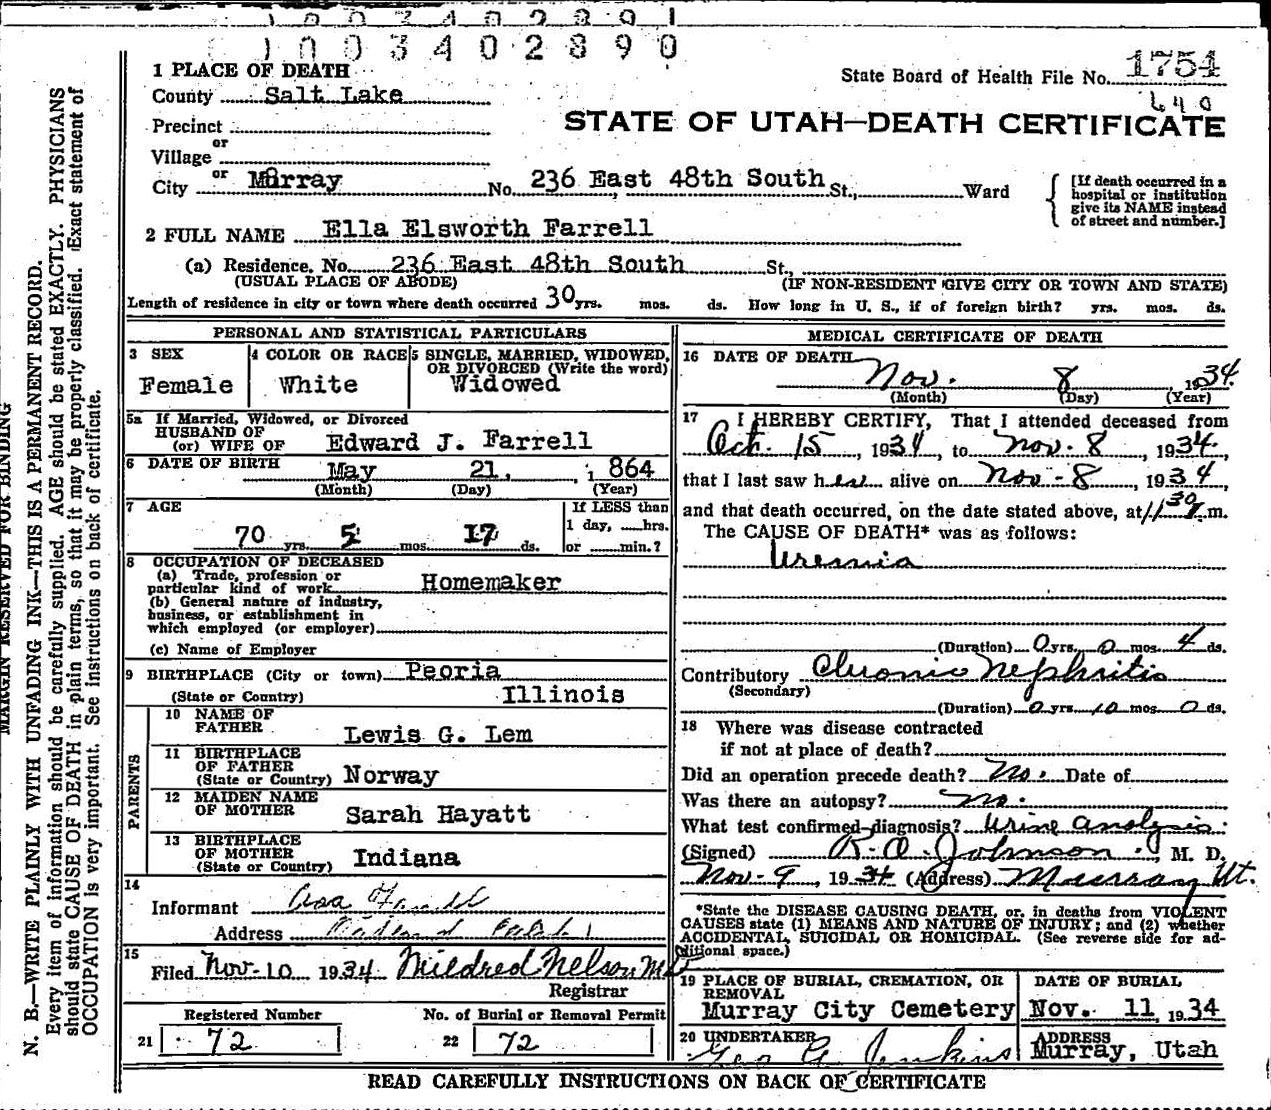 1003402891
1003402890
1 PLACE OF DEATH
County Salt Lake
Precinct
or
Village
or
City Murray No. 236 East 48th South St., Ward
State Board of Health File No. 1754
640
STATE OF UTAH—DEATH CERTIFICATE
[If death occurred in a
hospital or institution
give its NAME instead
of street and number.]
2 FULL NAME Ella Elsworth Farrell
(a) Residence, No. 236 East 48th South St.,
(USUAL PLACE OF ABODE) (IF NON-RESIDENT GIVE CITY OR TOWN AND STATE)
Length of residence in city or town where death occurred 30 yrs. mos. ds. How long in U. S., if of foreign birth? yrs. mos. ds.
PERSONAL AND STATISTICAL PARTICULARS
3 SEX
Female
4 COLOR OR RACE
White
5 SINGLE, MARRIED, WIDOWED,
OR DIVORCED (Write the word)
Widowed
5a If Married, Widowed, or Divorced
HUSBAND OF
(or) WIFE OF Edward J. Farrell
6 DATE OF BIRTH May 21, 1864
(Month) (Day) (Year)
7 AGE
70 yrs. 5 mos. 17 ds.
If LESS than
1 day, hrs.
or min.?
8 OCCUPATION OF DECEASED
(a) Trade, profession or
particular kind of work Homemaker
(b) General nature of industry,
business, or establishment in
which employed (or employer)
(c) Name of Employer
9 BIRTHPLACE (City or town) Peoria
(State or Country) Illinois
PARENTS
10 NAME OF
FATHER Lewis G. Lem
11 BIRTHPLACE
OF FATHER
(State or Country) Norway
12 MAIDEN NAME
OF MOTHER Sarah Hayatt
13 BIRTHPLACE
OF MOTHER
(State or Country) Indiana
14
Informant Asa Farrell
Address
15
Filed Nov-10 1934 Mildred Nelson
Registrar
Registered Number No. of Burial or Removal Permit
21 72 22 72
MEDICAL CERTIFICATE OF DEATH
16 DATE OF DEATH
Nov. 8, 1934.
(Month) (Day) (Year)
17 I HEREBY CERTIFY, That I attended deceased from
Oct. 15, 1934, to Nov. 8, 1934.
that I last saw her alive on Nov-8, 1934,
and that death occurred, on the date stated above, at 11 30 m.
The CAUSE OF DEATH* was as follows:
Uremia
(Duration) 0 yrs. 0 mos. 4 ds.
Contributory Chronic Nephritis
(Secondary)
(Duration) 0 yrs. 10 mos. 0 ds.
18 Where was disease contracted
if not at place of death?
Did an operation precede death? No. Date of
Was there an autopsy? No.
What test confirmed diagnosis? Urine analysis.
(Signed) R. A. Johnson, M. D.
Nov-9, 1934 (Address) Murray Ut.
*State the DISEASE CAUSING DEATH, or, in deaths from VIOLENT
CAUSES state (1) MEANS AND NATURE OF INJURY; and (2) whether
ACCIDENTAL, SUICIDAL OR HOMICIDAL. (See reverse side for ad-
ditional space.)
19 PLACE OF BURIAL, CREMATION, OR
REMOVAL
Murray City Cemetery
DATE OF BURIAL
Nov. 11, 1934
20 UNDERTAKER
Geo A Jenkins
ADDRESS
Murray, Utah
READ CAREFULLY INSTRUCTIONS ON BACK OF CERTIFICATE
MARGIN RESERVED FOR BINDING
N. B.—WRITE PLAINLY WITH UNFADING INK—THIS IS A PERMANENT RECORD.
Every item of information should be carefully supplied. AGE should be stated EXACTLY. PHYSICIANS
should state CAUSE OF DEATH in plain terms, so that it may be properly classified. Exact statement of
OCCUPATION is very important. See instructions on back of certificate.